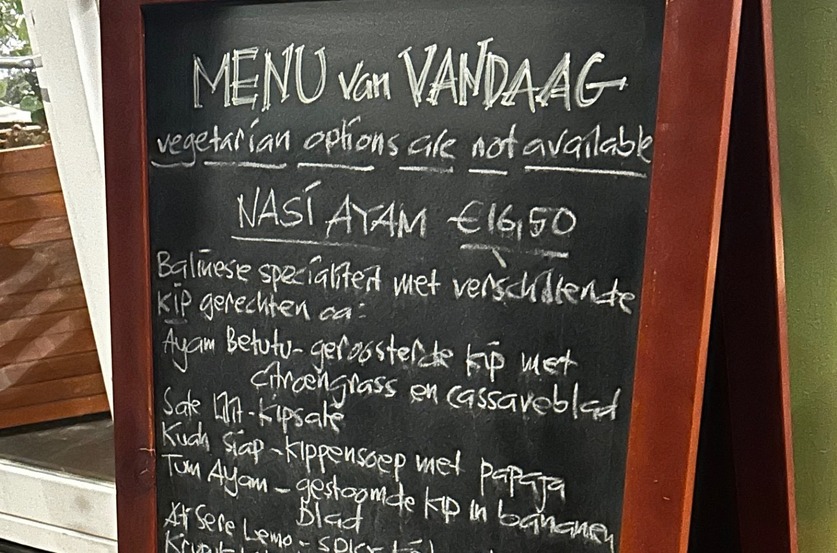 MENU van VANDAAG
vegetarian options are not available
NASI AYAM €16,50
Balinese specialiteit met verschillende
kip gerechten oa:
Ayam Betutu - geroosterde kip met
citroengrass en cassaveblad
Sate - kipsaté
Kuah Siap - kippensoep met papaja
Tum Ayam - gestoomde kip in bananen
Blad
Sere Lemo -